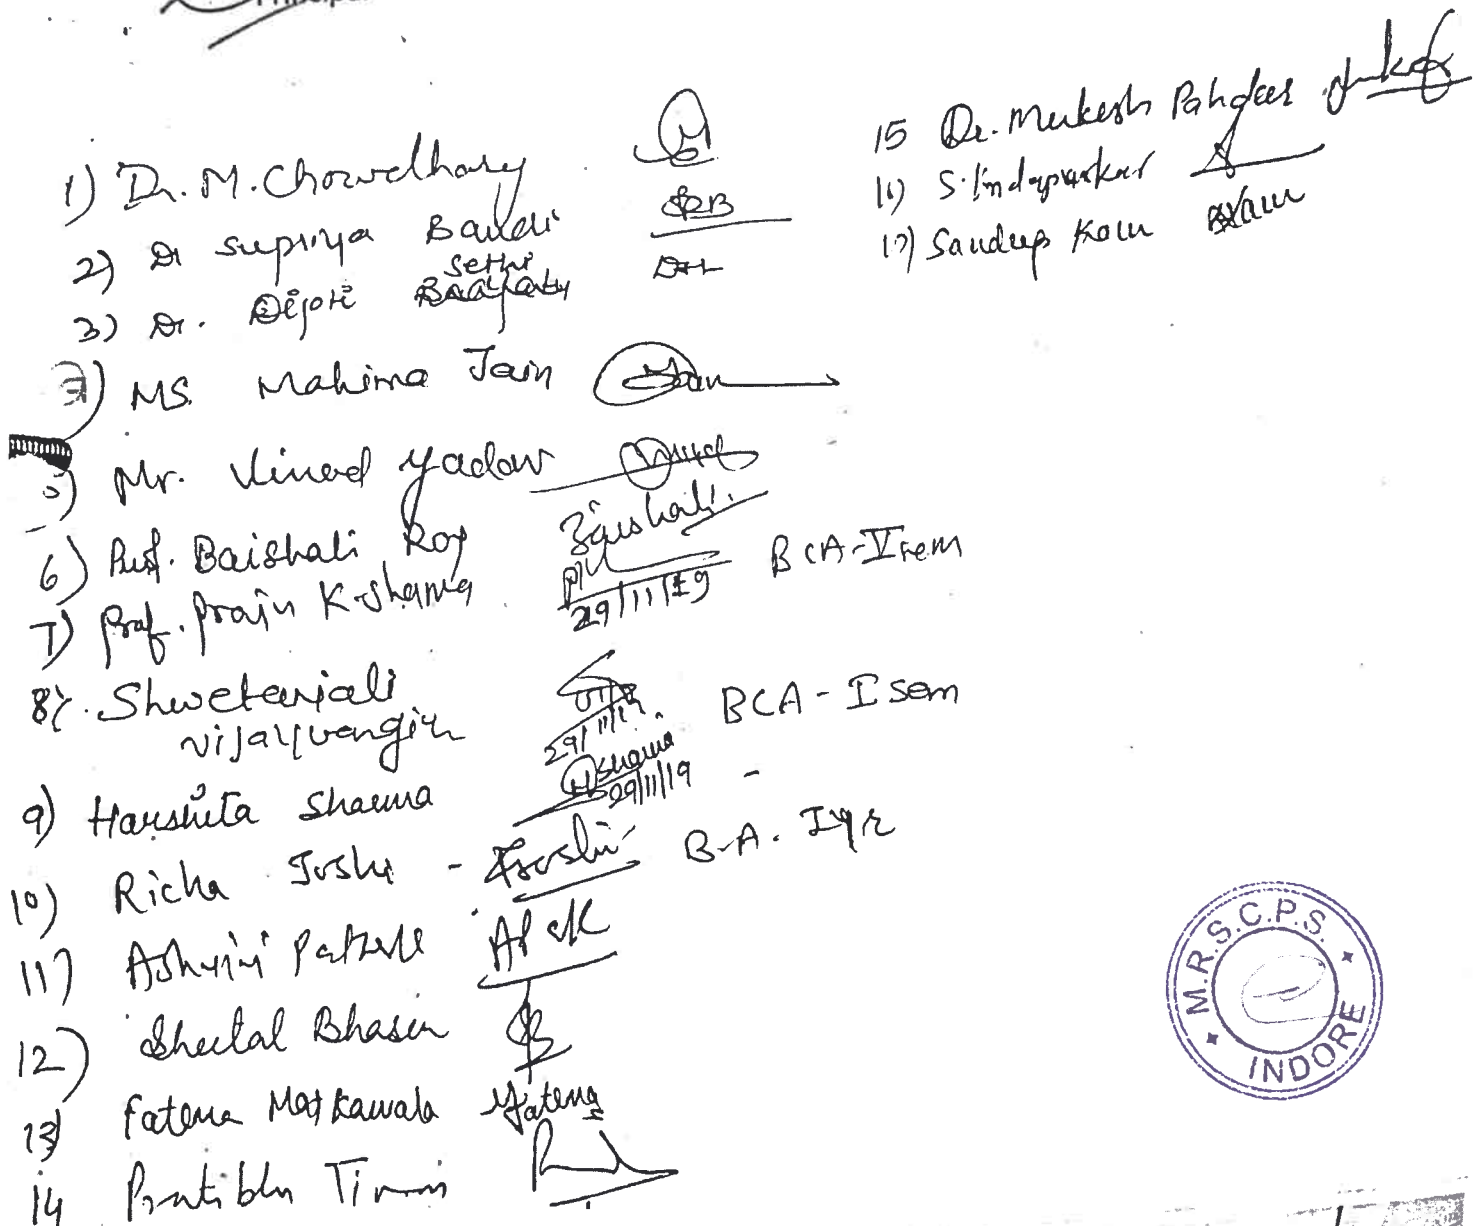 1) Dr. M. Chowdhary
2) Dr Supriya Bandi SRB
Sethi
3) Dr. Dipti
MS. Mahima Jain
5) Mr. Vinod Yadav
6) Prof. Baishali Roy Baishali
7) Prof. Praju K. Sharma 29/11/19 BCA-V sem
8). Shwetanjali
vijayvargiya 29/11/19 BCA - I sem
9) Harshita Sharma HSharma 29/11/19 -
10) Richa Joshi - RJoshi B.A. I yr
11) Ashwini
12) Sheetal Bhasin SB
13) Fatema Matkawala Fatema
14 Pratibha
15 Dr. Mukesh
S. Indapurkar
17) Sandeep
M.R.S.C.P.S.
INDORE